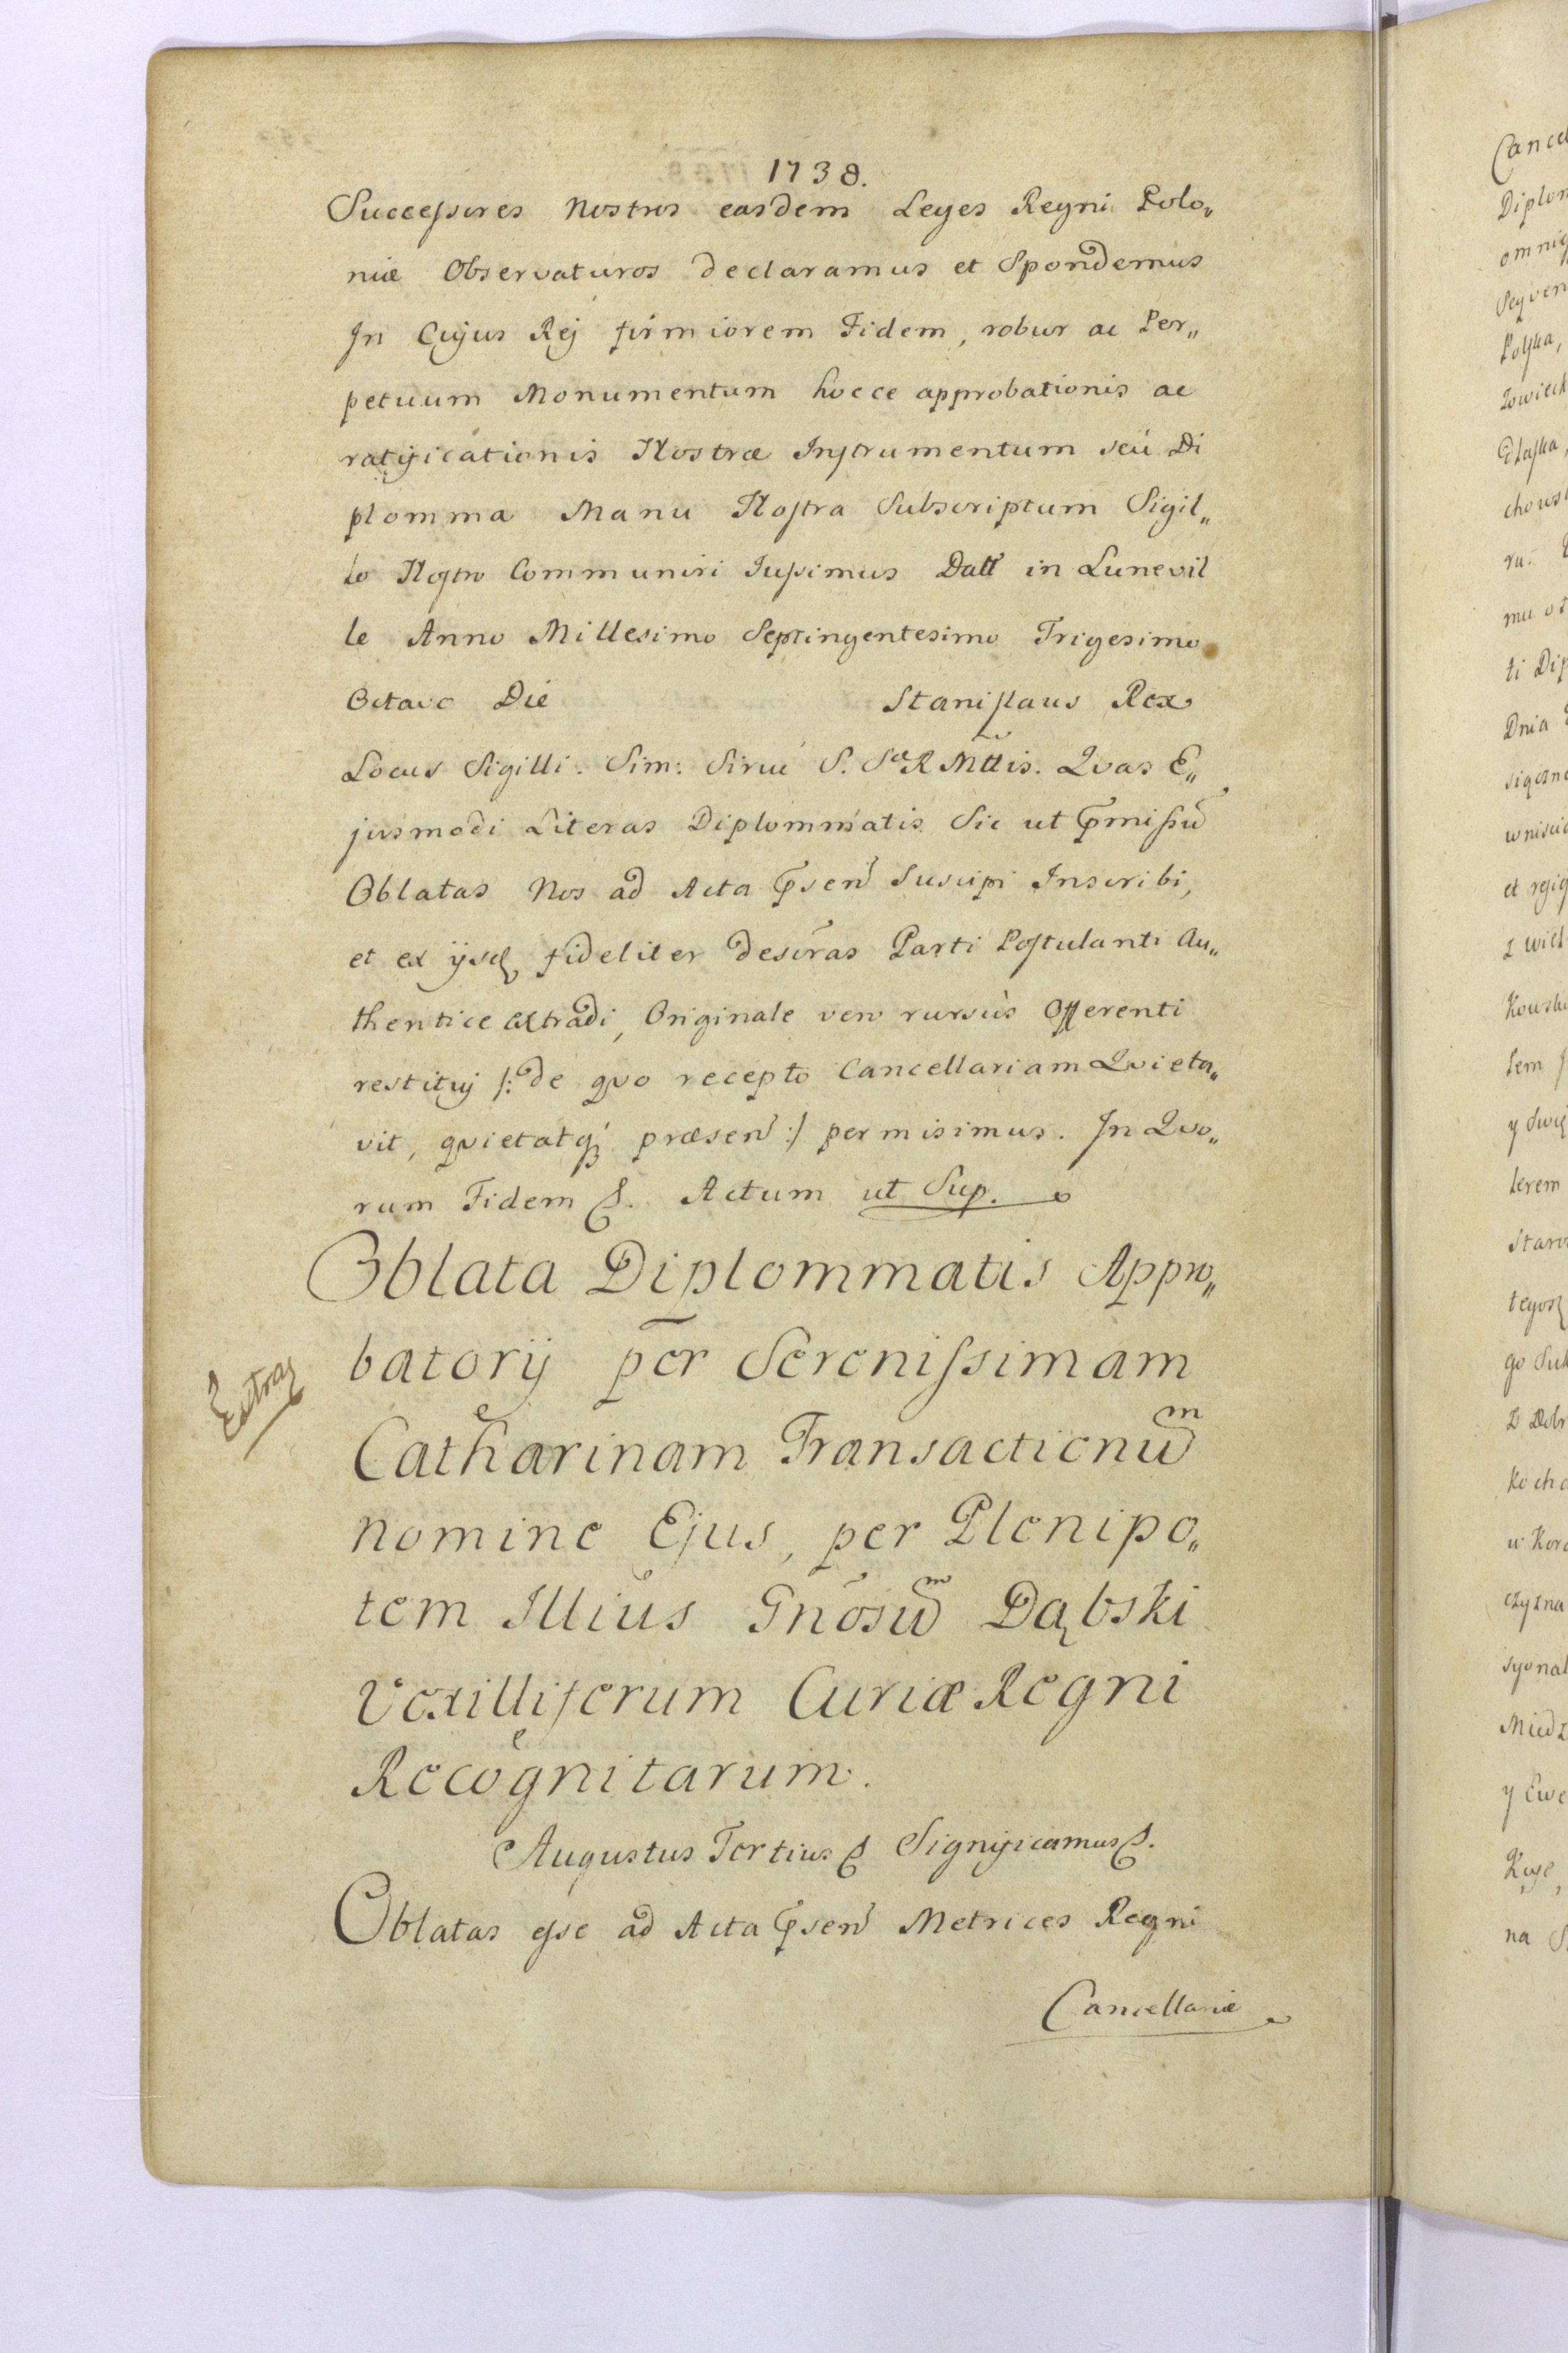 1738.
Successores Nostros easdem Leges Regni Polo„
niæ Observaturos declaramus et Spondemus
In Cujus Rej firmiorem Fidem, robur ac Per„
petuum Monumentum hocce approbationis ac
ratificationis Nostræ Instrumentum seu Di
plomma Manu Nostra Subscriptum Sigil„
lo Nostro Communiri Iussimus Datt in Lunevil
le Anno Millesimo Septingentesimo Trigesimo
Octavo Die Stanislaus Rex
Locus Sigilli. Sim: Siruć S. Sæ R Mttis. Qvas E„
jusmodi Literas Diplommatis Sic ut p̃missũ
Oblatas Nos ad Acta p̃sen̄ Suscipi Inscribi,
et ex ijsq fideliter descr̃as Parti Postulanti Au„
thentice extradi, Originale vero rursùs Offerenti
restituj /: de qvo recepto Cancellariam Qvieta„
vit, qvietatq́ præsen̄ :/ permisimus. In Qvo„
rum Fidem &. Actum ut Sup.
Oblata Diplommatis Appro„
batorij per Serenissimam
Catharinam Transactionũm
nomine Ejus, per Plenipo„
tem Illius Gn̄osũm Dąbski
Vexilliferum Curiæ Regni
Recognitarum.
Extrag
Augustus Tertius & Significamus &.
Oblatas esse ad Acta p̃sen̄ Metrices Regni
Cancellariæ
Cancel
Diplom
omniq
Seqven
Polska,
chows
ru.
mu ot
ti Dip
Dnia
et rgig
z wiel
Kowsk
Sem
y Swię
lerem
Staro
tegosz
go Suk
Z Dobr
Kocha
w Koro
czyzna
syonal
Miedz
y Ewe
Kuje,
na S